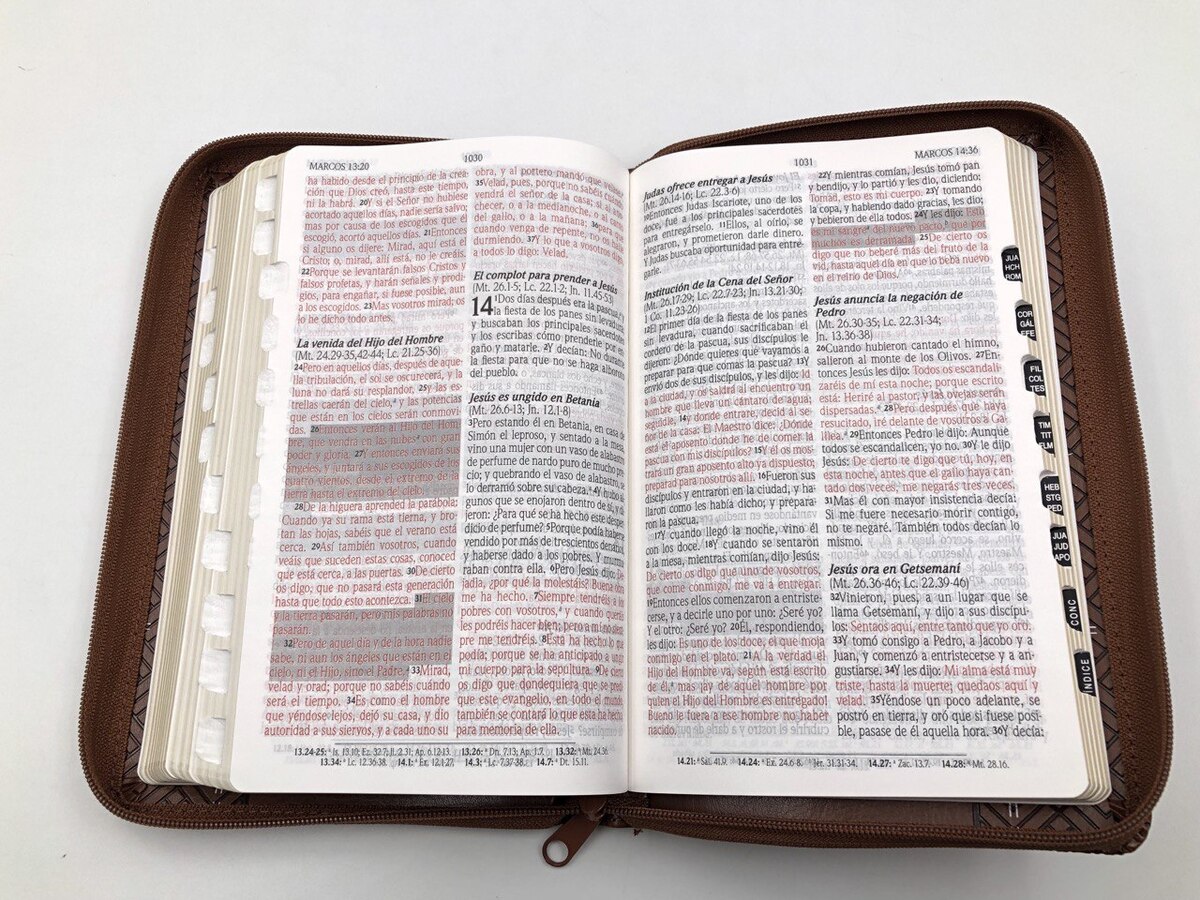 MARCOS 13:20
1030
ha habido desde el principio de la crea-
ción que Dios creó, hasta este tiempo,
ni la habrá. 20Y si el Señor no hubiese
acortado aquellos días, nadie sería salvo;
mas por causa de los escogidos que él
escogió, acortó aquellos días. 21Entonces
si alguno os dijere: Mirad, aquí está el
Cristo; o, mirad, allí está, no le creáis.
22Porque se levantarán falsos Cristos y
falsos profetas, y harán señales y prodi-
gios, para engañar, si fuese posible, aun
a los escogidos. 23Mas vosotros mirad; os
lo he dicho todo antes.
La venida del Hijo del Hombre
(Mt. 24.29-35,42-44; Lc. 21.25-36)
24Pero en aquellos días, después de aque-
lla tribulación, el sol se oscurecerá, y la
luna no dará su resplandor, 25y las es-
trellas caerán del cielo,a y las potencias
que están en los cielos serán conmovi-
das. 26Entonces verán al Hijo del Hom-
bre, que vendrá en las nubesa con gran
poder y gloria. 27Y entonces enviará sus
ángeles, y juntará a sus escogidos de los
cuatro vientos, desde el extremo de la
tierra hasta el extremo del cielo.
28De la higuera aprended la parábola:
Cuando ya su rama está tierna, y bro-
tan las hojas, sabéis que el verano está
cerca. 29Así también vosotros, cuando
veáis que suceden estas cosas, conoced
que está cerca, a las puertas. 30De cierto
os digo, que no pasará esta generación
hasta que todo esto acontezca. 31El cielo
y la tierra pasarán, pero mis palabras no
pasarán.
32Pero de aquel día y de la hora nadie
sabe, ni aun los ángeles que están en el
cielo, ni el Hijo, sino el Padre.a 33Mirad,
velad y orad; porque no sabéis cuándo
será el tiempo. 34Es como el hombre
que yéndose lejos, dejó su casa, y dio
autoridad a sus siervos, y a cada uno su
obra, y al portero mandó que velase.
35Velad, pues, porque no sabéis cuándo
vendrá el señor de la casa; si al ano-
checer, o a la medianoche, o al canto
del gallo, o a la mañana; 36para que
cuando venga de repente, no os halle
durmiendo. 37Y lo que a vosotros digo,
a todos lo digo: Velad.
El complot para prender a Jesús
(Mt. 26.1-5; Lc. 22.1-2; Jn. 11.45-53)
14 1Dos días después era la pascua,a y
la fiesta de los panes sin levadura;
y buscaban los principales sacerdotes
y los escribas cómo prenderle por en-
gaño y matarle. 2Y decían: No durante
la fiesta para que no se haga alboroto
del pueblo.
Jesús es ungido en Betania
(Mt. 26.6-13; Jn. 12.1-8)
3Pero estando él en Betania, en casa de
Simón el leproso, y sentado a la mesa,
vino una mujer con un vaso de alabastro
de perfume de nardo puro de mucho pre-
cio; y quebrando el vaso de alabastro, se
lo derramó sobre su cabeza.a 4Y hubo al-
gunos que se enojaron dentro de sí, y di-
jeron: ¿Para qué se ha hecho este desper-
dicio de perfume? 5Porque podía haberse
vendido por más de trescientos denarios,
y haberse dado a los pobres. Y murmu-
raban contra ella. 6Pero Jesús dijo: De-
jadla, ¿por qué la molestáis? Buena obra
me ha hecho. 7Siempre tendréis a los
pobres con vosotros,a y cuando queráis
les podréis hacer bien; pero a mí no siem-
pre me tendréis. 8Esta ha hecho lo que
podía; porque se ha anticipado a ungir
mi cuerpo para la sepultura. 9De cierto
os digo que dondequiera que se predique
este evangelio, en todo el mundo,
también se contará lo que ésta ha hecho,
para memoria de ella.
13.24-25: a Is. 13.10; Ez. 32.7; Jl. 2.31; Ap. 6.12-13. 13.26: a Dn. 7.13; Ap. 1.7. 13.32: a Mt. 24.36.
13.34: a Lc. 12.36-38. 14.1: a Éx. 12.1-27. 14.3: a Lc. 7.37-38. 14.7: a Dt. 15.11.
1031
MARCOS 14:36
Judas ofrece entregar a Jesús
(Mt. 26.14-16; Lc. 22.3-6)
10Entonces Judas Iscariote, uno de los
doce, fue a los principales sacerdotes
para entregárselo. 11Ellos, al oírlo, se
alegraron, y prometieron darle dinero.
Y Judas buscaba oportunidad para entre-
garle.
Institución de la Cena del Señor
(Mt. 26.17-29; Lc. 22.7-23; Jn. 13.21-30;
1 Co. 11.23-26)
12El primer día de la fiesta de los panes
sin levadura, cuando sacrificaban el
cordero de la pascua, sus discípulos le
dijeron: ¿Dónde quieres que vayamos a
preparar para que comas la pascua? 13Y
envió dos de sus discípulos, y les dijo: Id
a la ciudad, y os saldrá al encuentro un
hombre que lleva un cántaro de agua;
seguidle, 14y donde entrare, decid al se-
ñor de la casa: El Maestro dice: ¿Dónde
está el aposento donde he de comer la
pascua con mis discípulos? 15Y él os mos-
trará un gran aposento alto ya dispuesto;
preparad para nosotros allí. 16Fueron sus
discípulos y entraron en la ciudad, y ha-
llaron como les había dicho; y prepara-
ron la pascua.
17Y cuando llegó la noche, vino él
con los doce. 18Y cuando se sentaron
a la mesa, mientras comían, dijo Jesús:
De cierto os digo que uno de vosotros,
que come conmigo, me va a entregar.
19Entonces ellos comenzaron a entriste-
cerse, y a decirle uno por uno: ¿Seré yo?
Y el otro: ¿Seré yo? 20Él, respondiendo,
les dijo: Es uno de los doce, el que moja
conmigo en el plato. 21A la verdad el
Hijo del Hombre va, según está escrito
de él,a mas ¡ay de aquel hombre por
quien el Hijo del Hombre es entregado!
Bueno le fuera a ese hombre no haber
nacido.
22Y mientras comían, Jesús tomó pan
y bendijo, y lo partió y les dio, diciendo:
Tomad, esto es mi cuerpo. 23Y tomando
la copa, y habiendo dado gracias, les dio;
y bebieron de ella todos. 24Y les dijo: Esto
es mi sangrea del nuevo pacto,b que por
muchos es derramada. 25De cierto os
digo que no beberé más del fruto de la
vid, hasta aquel día en que lo beba nuevo
en el reino de Dios.
Jesús anuncia la negación de
Pedro
(Mt. 26.30-35; Lc. 22.31-34;
Jn. 13.36-38)
26Cuando hubieron cantado el himno,
salieron al monte de los Olivos. 27En-
tonces Jesús les dijo: Todos os escandali-
zaréis de mí esta noche; porque escrito
está: Heriré al pastor, y las ovejas serán
dispersadas.a 28Pero después que haya
resucitado, iré delante de vosotros a Ga-
lilea.a 29Entonces Pedro le dijo: Aunque
todos se escandalicen, yo no. 30Y le dijo
Jesús: De cierto te digo que tú, hoy, en
esta noche, antes que el gallo haya can-
tado dos veces, me negarás tres veces.
31Mas él con mayor insistencia decía:
Si me fuere necesario morir contigo,
no te negaré. También todos decían lo
mismo.
Jesús ora en Getsemaní
(Mt. 26.36-46; Lc. 22.39-46)
32Vinieron, pues, a un lugar que se
llama Getsemaní, y dijo a sus discípu-
los: Sentaos aquí, entre tanto que yo oro.
33Y tomó consigo a Pedro, a Jacobo y a
Juan, y comenzó a entristecerse y a an-
gustiarse. 34Y les dijo: Mi alma está muy
triste, hasta la muerte; quedaos aquí y
velad. 35Yéndose un poco adelante, se
postró en tierra, y oró que si fuese posi-
ble, pasase de él aquella hora. 36Y decía:
14.21: a Sal. 41.9. 14.24: a Éx. 24.6-8. b Jer. 31.31-34. 14.27: a Zac. 13.7. 14.28: a Mt. 28.16.
JUA
HCH
ROM
COR
GÁL
EFE
FIL
COL
TES
TIM
TIT
FLM
HEB
STG
PED
JUA
JUD
APO
CONC
ÍNDICE